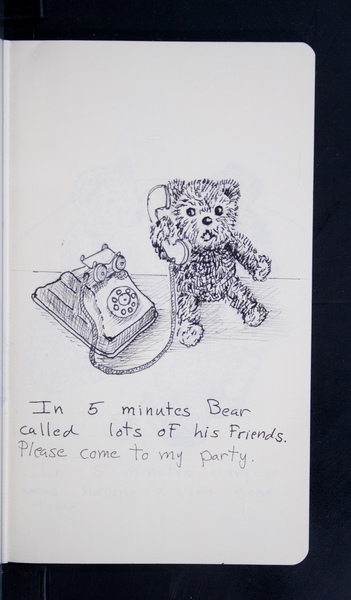 In 5 minutes Bear
called lots of his Friends.
Please come to my party.